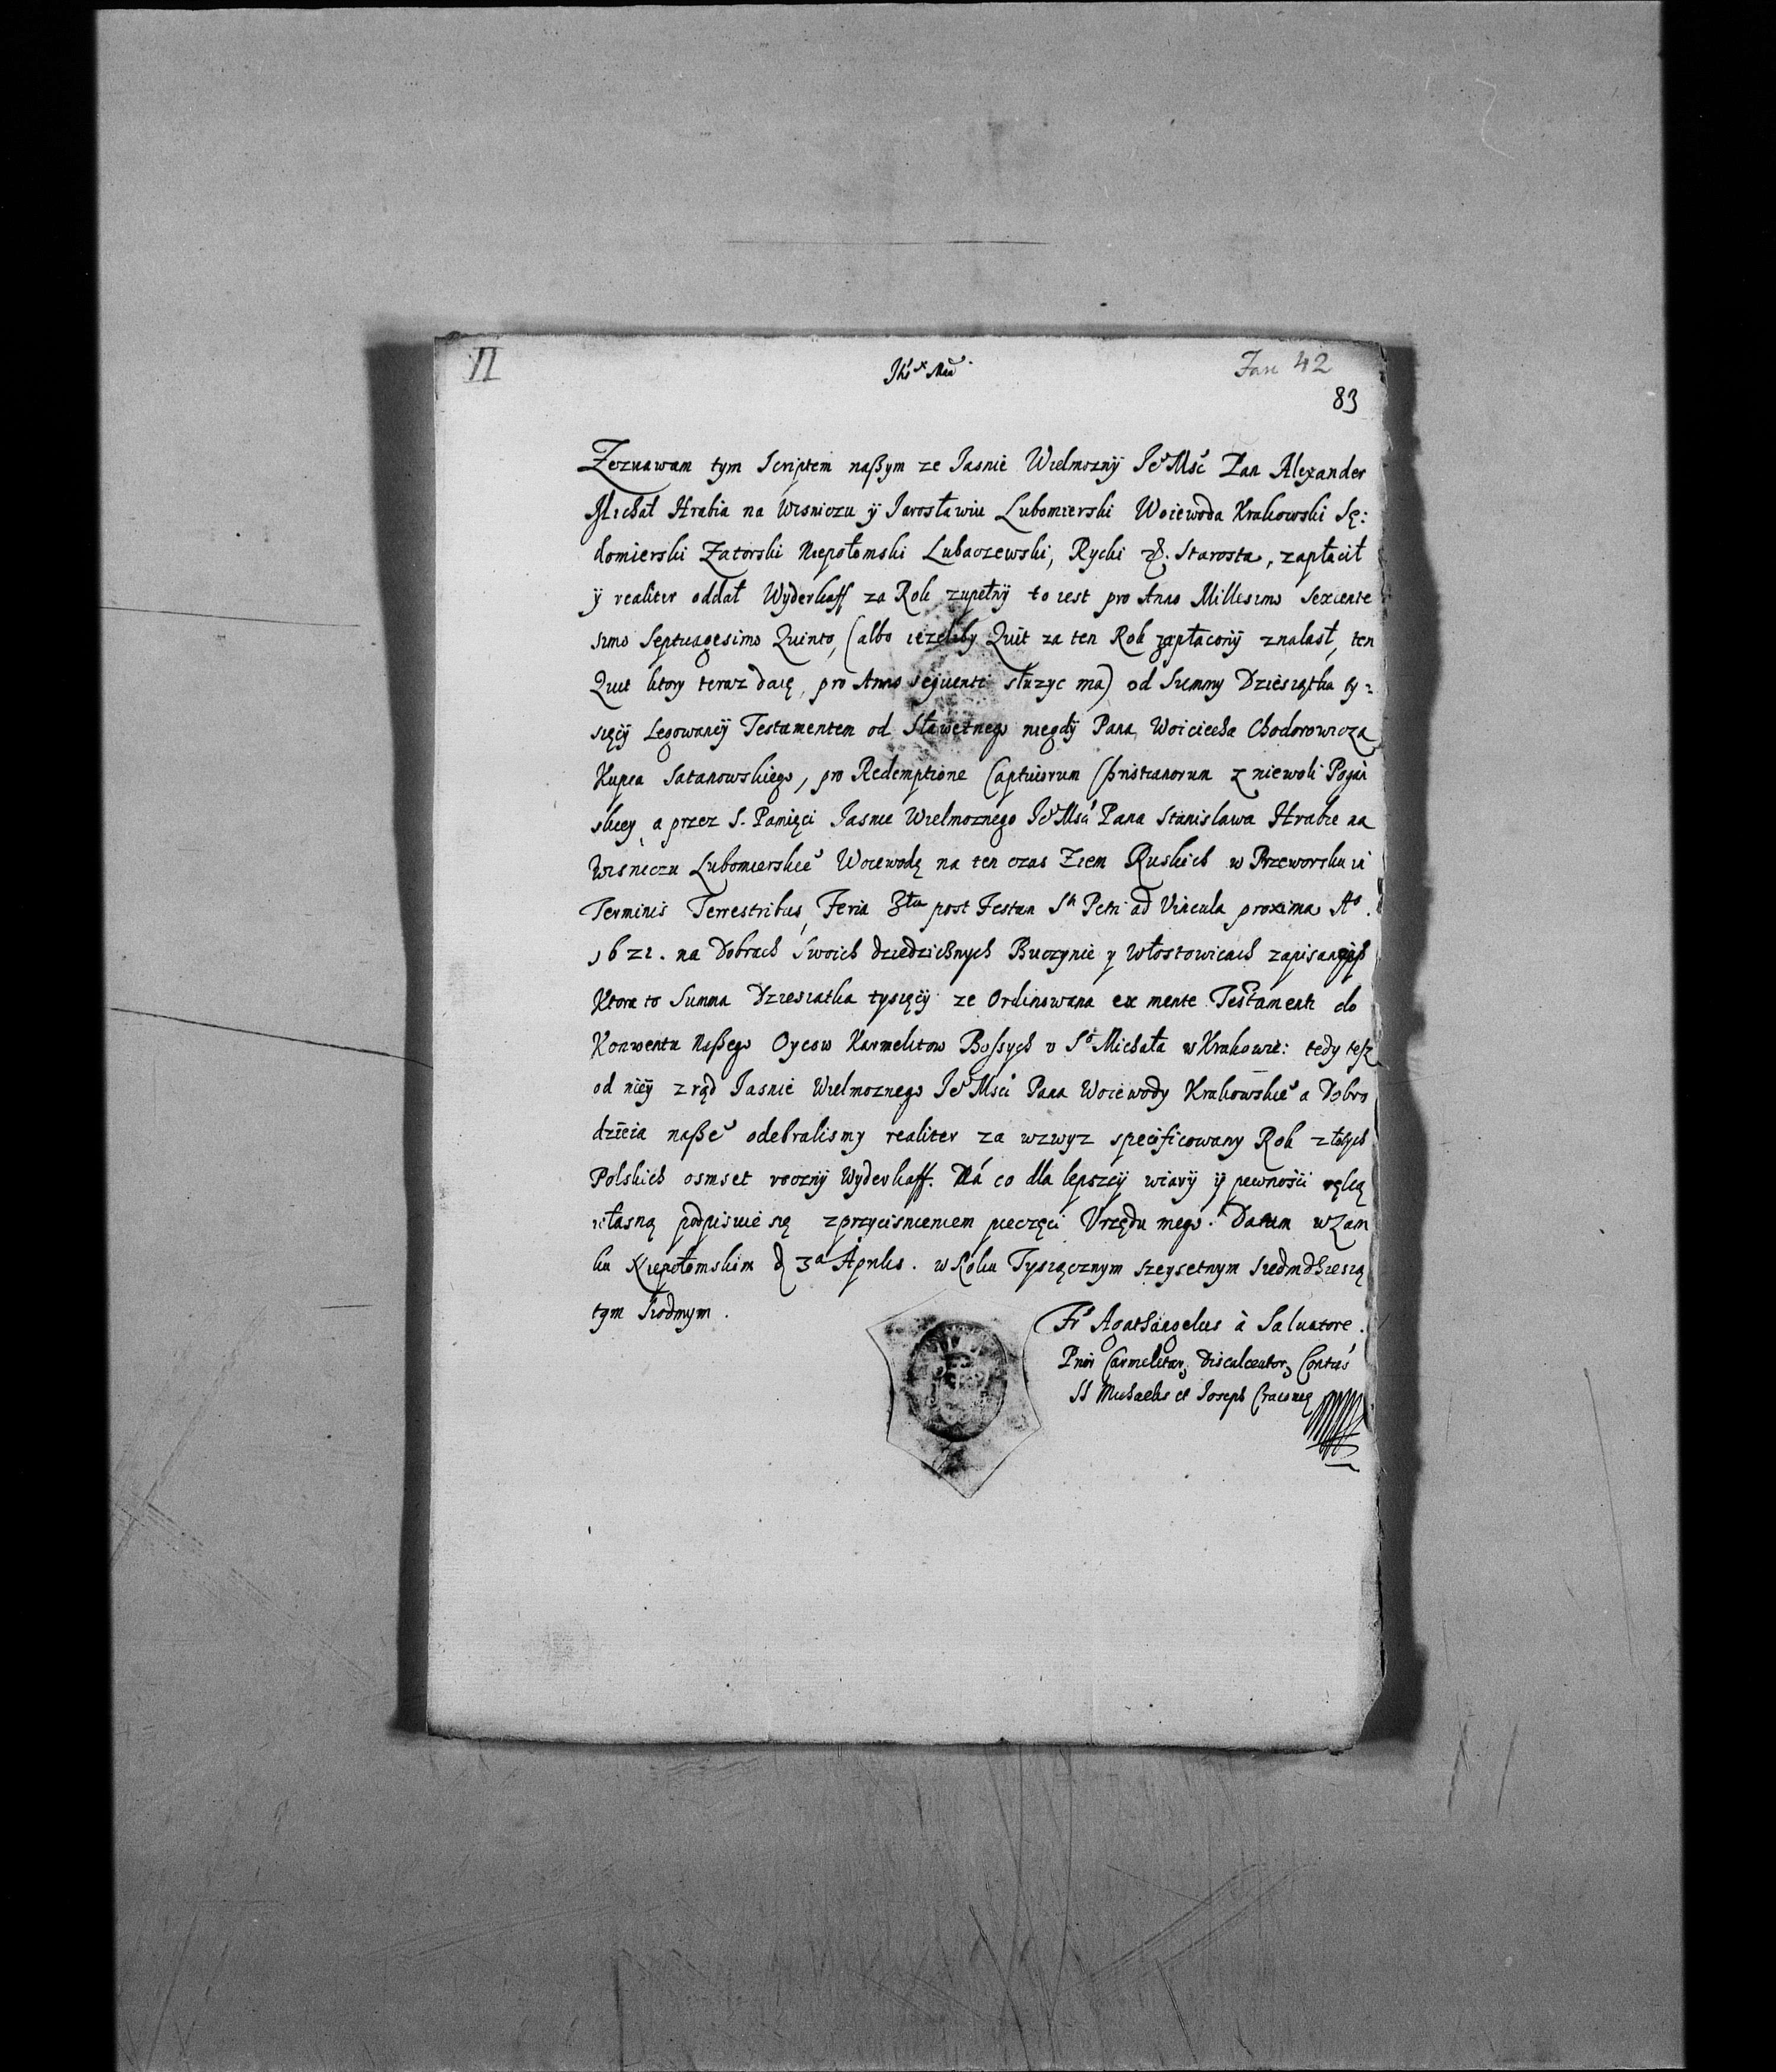 II
Jhs x Mar
Fasc 42
83
Zeznawam tym Scriptem naßym ze Jasnie Wielmozny Je° Mść Pan Alexander
Michał Hrabia na Wisniczu ÿ Jarosławiu Lubomierski Woiewoda Krakowski Sę:
domierski Zatorski Niepołomski Lubaczewski, Rycki &. Starosta, zapłacił
ÿ realiter oddał Wyderkaff za Rok zupełnÿ to iest pro Anno Millesimo Sexcente
simo Septuagesimo Quinto, (albo iezeliby Quit za ten Rok zapłaconÿ znalasł, ten
Quit ktory teraz daię, pro Anno sequenti słuzyc ma) od Summy Dziesiątka ty:
sięcÿ Legowaneÿ Testamentem od Sławetnego niegdÿ Pana Woiciecha Chodorowicza
Kupca Satanowskiego, pro Redemptione Captiuorum Christianorum z niewoli Pogań
skiey a przez S. Pamięci Jasnie Wielmoznego Je° Mści Pana Stanislawa Hrabie na
Wisniczu Lubomierskie° Woiewodę na ten czas Ziem Ruskich w Przeworsku in
Terminis Terrestribus, Feria 3tia post Festum S^ti Petri ad Vincula proxima A°.
1621. na Dobrach Swoich dziedzichnych Buczynie y Włostowicach zapisanych
Ktora to Summa Dziesiatka tysięcÿ ze Ordinowana ex mente Testamenti do
Konwentu Naßego Oycow Karmelitow Bossych v S° Michała w Krakowie: tedy tesz
od nieÿ z rąd Jasnie Wielmoznego Je° Mści Pana Woiewody Krakowskie° a Dobro
dzieia naße° odebralismy realiter za wzwyz specificowany Rok złotych
Polskich osmset rocznÿ Wyderkaff. Ná co dla lepszeÿ wiarÿ ÿ pewnośći ręką
własną podpisuie się z przycisnieniem pieczęci Vrzędu mego. Datum w Zam
ku Niepołomskim d 3^a Aprilis. w Roku Tysiącznym szeysetnym siedmdziesią
tym Siodmym.
Fr Agathangelus à Saluatore.
Prior Carmelitar, Discalceator, Contus
SS Michaelis et Joseph Cracouię